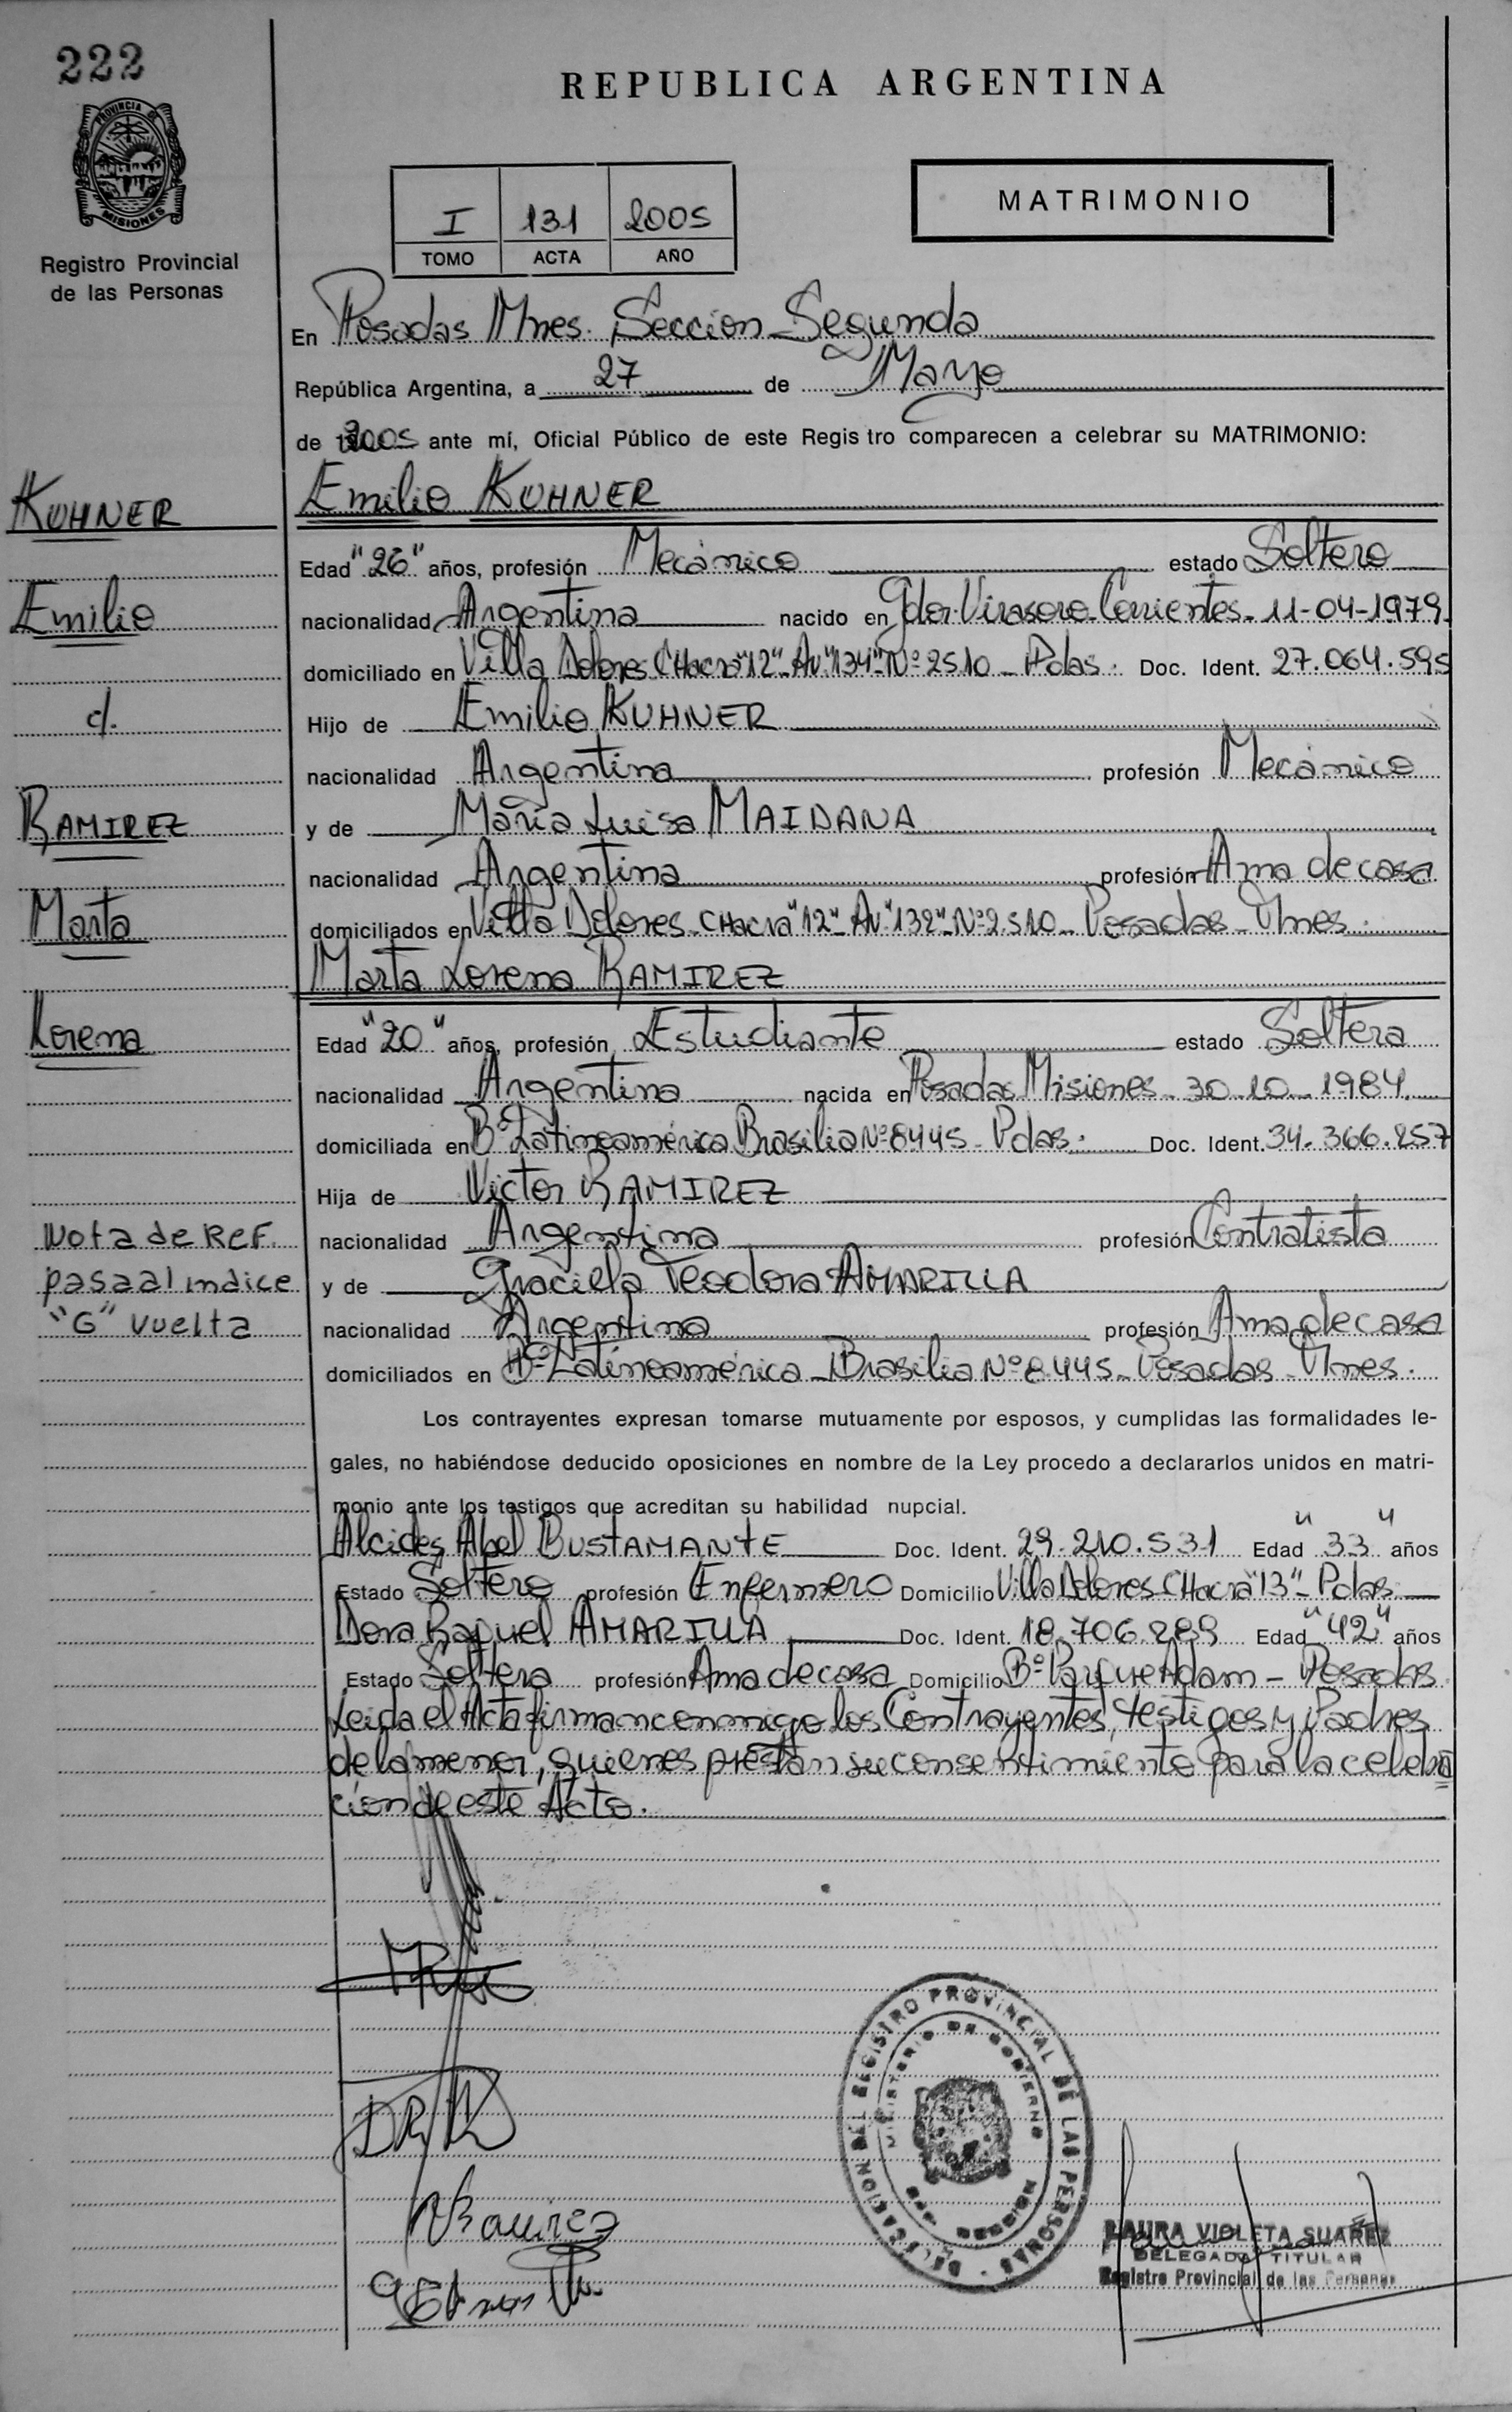 222
REPUBLICA ARGENTINA
PROVINCIA DE
MISIONES
Registro Provincial
de las Personas
MATRIMONIO
I 131 2005
TOMO ACTA AÑO
En Posadas Mnes. Seccion Segunda
República Argentina, a 27 de Mayo
de 2005 ante mí, Oficial Público de este Regis tro comparecen a celebrar su MATRIMONIO:
KUHNER Emilio KUHNER
Edad "26" años, profesión Mecánico estado Soltero
Emilio nacionalidad Argentina nacido en Gdor. Virasoro Corrientes - 11-04-1979
domiciliado en Villa Dolores CHacra "12" Av. "134" Nº 2510 - Pdas. Doc. Ident. 27.064.595
c/. Hijo de Emilio KUHNER
nacionalidad Argentina profesión Mecánico
RAMIREZ y de María Luisa MAIDANA
nacionalidad Argentina profesión Ama de casa
Marta domiciliados en Villa Dolores - CHacra "12" Av. "132" Nº 2510 - Posadas - Mnes.
Marta Lorena RAMIREZ
Lorena Edad "20" años, profesión Estudiante estado Soltera
nacionalidad Argentina nacida en Posadas Misiones - 30-10-1984
domiciliada en Bº Latinoamérica Brasilia Nº 8445 - Pdas. Doc. Ident. 34.366.257
Hija de Victor RAMIREZ
Nota de Ref. nacionalidad Argentina profesión Contratista
pasa al indice y de Graciela Teodora AMARILLA
"G" vuelta nacionalidad Argentina profesión Ama de casa
domiciliados en Bº Latinoamérica - Brasilia Nº 8445 - Posadas - Mnes.
Los contrayentes expresan tomarse mutuamente por esposos, y cumplidas las formalidades le-
gales, no habiéndose deducido oposiciones en nombre de la Ley procedo a declararlos unidos en matri-
monio ante los testigos que acreditan su habilidad nupcial.
Alcides Abel BUSTAMANTE Doc. Ident. 29.210.531 Edad "33" años
Estado Soltero profesión Enfermero Domicilio Villa Dolores CHacra "13" - Pdas.
Dora Raquel AMARILLA Doc. Ident. 18.706.289 Edad "42" años
Estado Soltera profesión Ama de casa Domicilio Bº Parque Adam - Posadas
Leida el Acta firman conmigo los Contrayentes, testigos y Padres
de la menor, quienes prestan su consentimiento para la celebra
cion de este Acto.
DELEGACION DEL REGISTRO PROVINCIAL DE LAS PERSONAS
MINISTERIO DE GOBIERNO
Ramirez
LAURA VIOLETA SUAREZ
DELEGADA TITULAR
Registro Provincial de las Personas